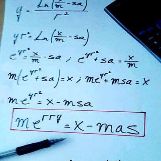 y = Ln(x/m - sa) / r²
yr² = Ln(x/m - sa)
e^yr² = x/m - sa; e^yr² + sa = x/m
m(e^yr² + sa) = x; me^yr² + msa = x
me^yr² = x - msa
me^rry = x - mas